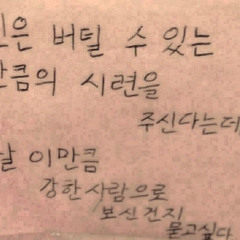 신은 버틸 수 있는
만큼의 시련을
주신다는데
날 이만큼
강한 사람으로
보신건지
묻고싶다